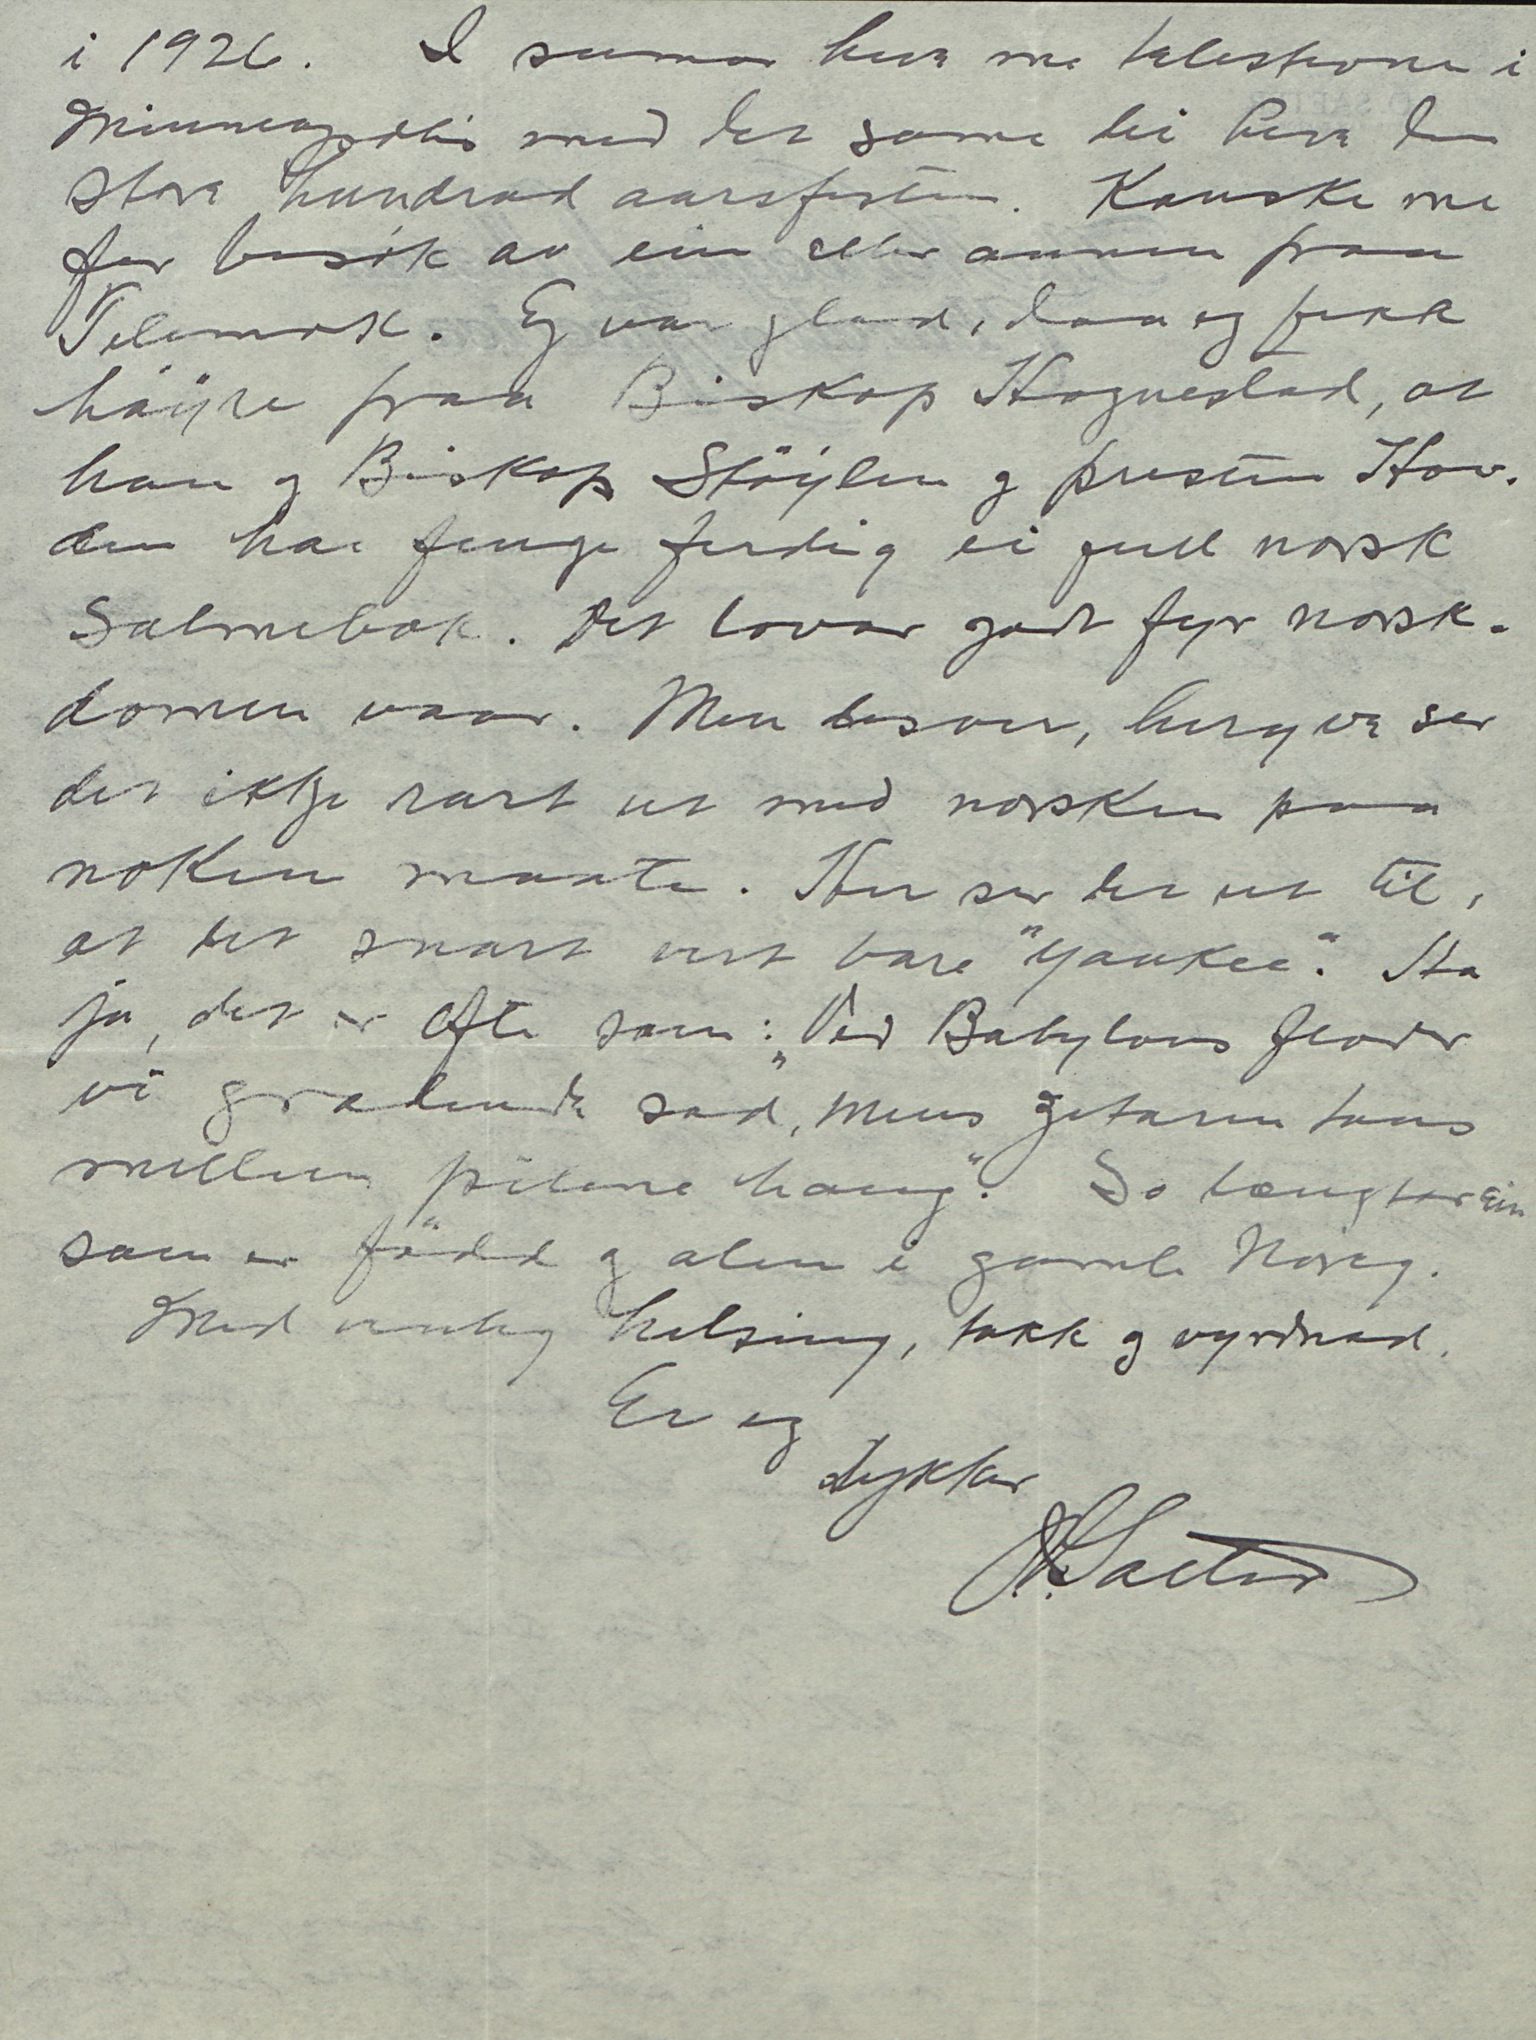 i 1926. I sumar heva me telestevna i
Minneapolis med det same dei heva den
stora hundrad aarsfesten. Kanske me
fær besök av ein eller annen fraa
Telemark. Eg var glad, daa eg fekk
höyre fraa Biskop Hognestad, at
han og Biskop Stöylen og presten Hov-
den har fenge ferdig ei full norsk
Salmebok. Det lovar godt fyr norsk-
domen vaar. Men desver, heryve ser
det ikkje rart ut med norsken paa
noken maate. Her ser det ut til,
at det snart vert bare "Yankee". Aa
ja, det er ofte som: "Ved Babylons floder
vi grædende sad, mens gitaren taus
mellem pilene hang". So længtar ein
som er född og alen i gamle Noreg.
Med venleg helsing, takk og vyrdnad.
Er eg
dykkar
Saetre